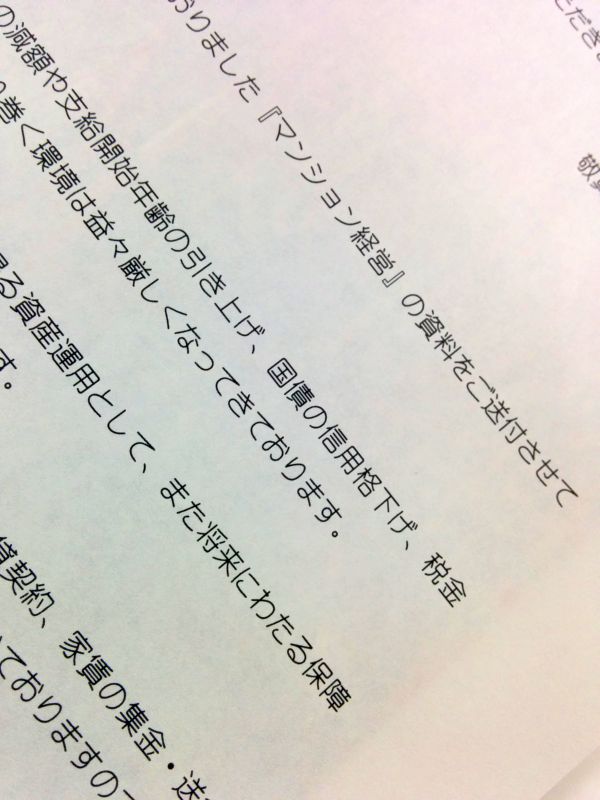 ただき
敬具
おりました『マンション経営』の資料をご送付させて
の減額や支給開始年齢の引き上げ、国債の信用格下げ、税金
巻く環境は益々厳しくなってきております。
る資産運用として、また将来にわたる保障
す。
貸契約、家賃の集金・送
ておりますの